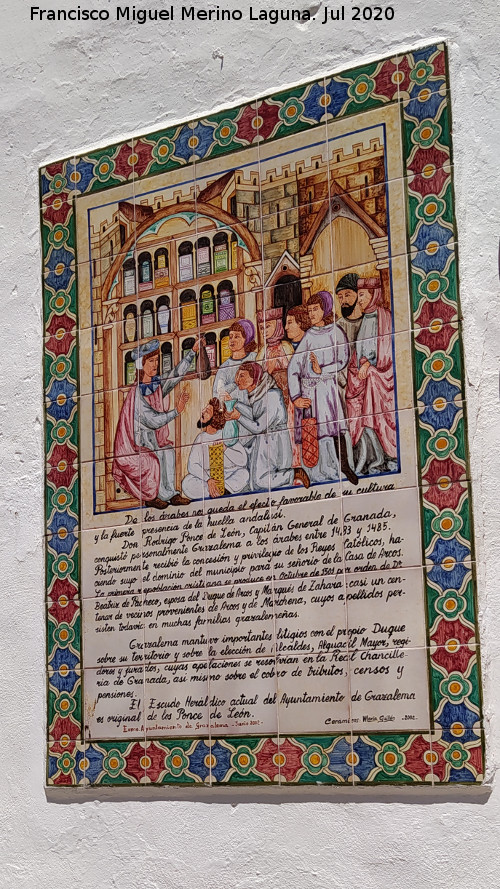 Francisco Miguel Merino Laguna. Jul 2020
De los árabes nos queda el efecto favorable de su cultura
y la fuerte presencia de la huella andalusí.
Don Rodrigo Ponce de León, Capitán General de Granada,
conquistó personalmente Grazalema a los árabes entre 1483 y 1485.
Posteriormente recibió la concesión y privilegio de los Reyes Católicos, ha-
ciendo suyo el dominio del municipio para su señorío de la Casa de Arcos.
La primera repoblación cristiana se produce en Octubre de 1501 por orden de Dª
Beatriz de Pacheco, esposa del Duque de Arcos y Marqués de Zahara: casi un cen-
tenar de vecinos provenientes de Arcos y de Marchena, cuyos apellidos per-
sisten todavía en muchas familias grazalemeñas.
Grazalema mantuvo importantes litigios con el propio Duque
sobre su territorio y sobre la elección de Alcaldes, Alguacil Mayor, regi-
dores y jurados, cuyas apelaciones se resolvían en la Real Chancille-
ría de Granada, así mismo sobre el cobro de tributos, censos y
pensiones.
El Escudo Heráldico actual del Ayuntamiento de Grazalema
es original de los Ponce de León.
Excmo. Ayuntamiento de Grazalema - Junio 2002 -
Ceramista: María Guilló - 2002 -